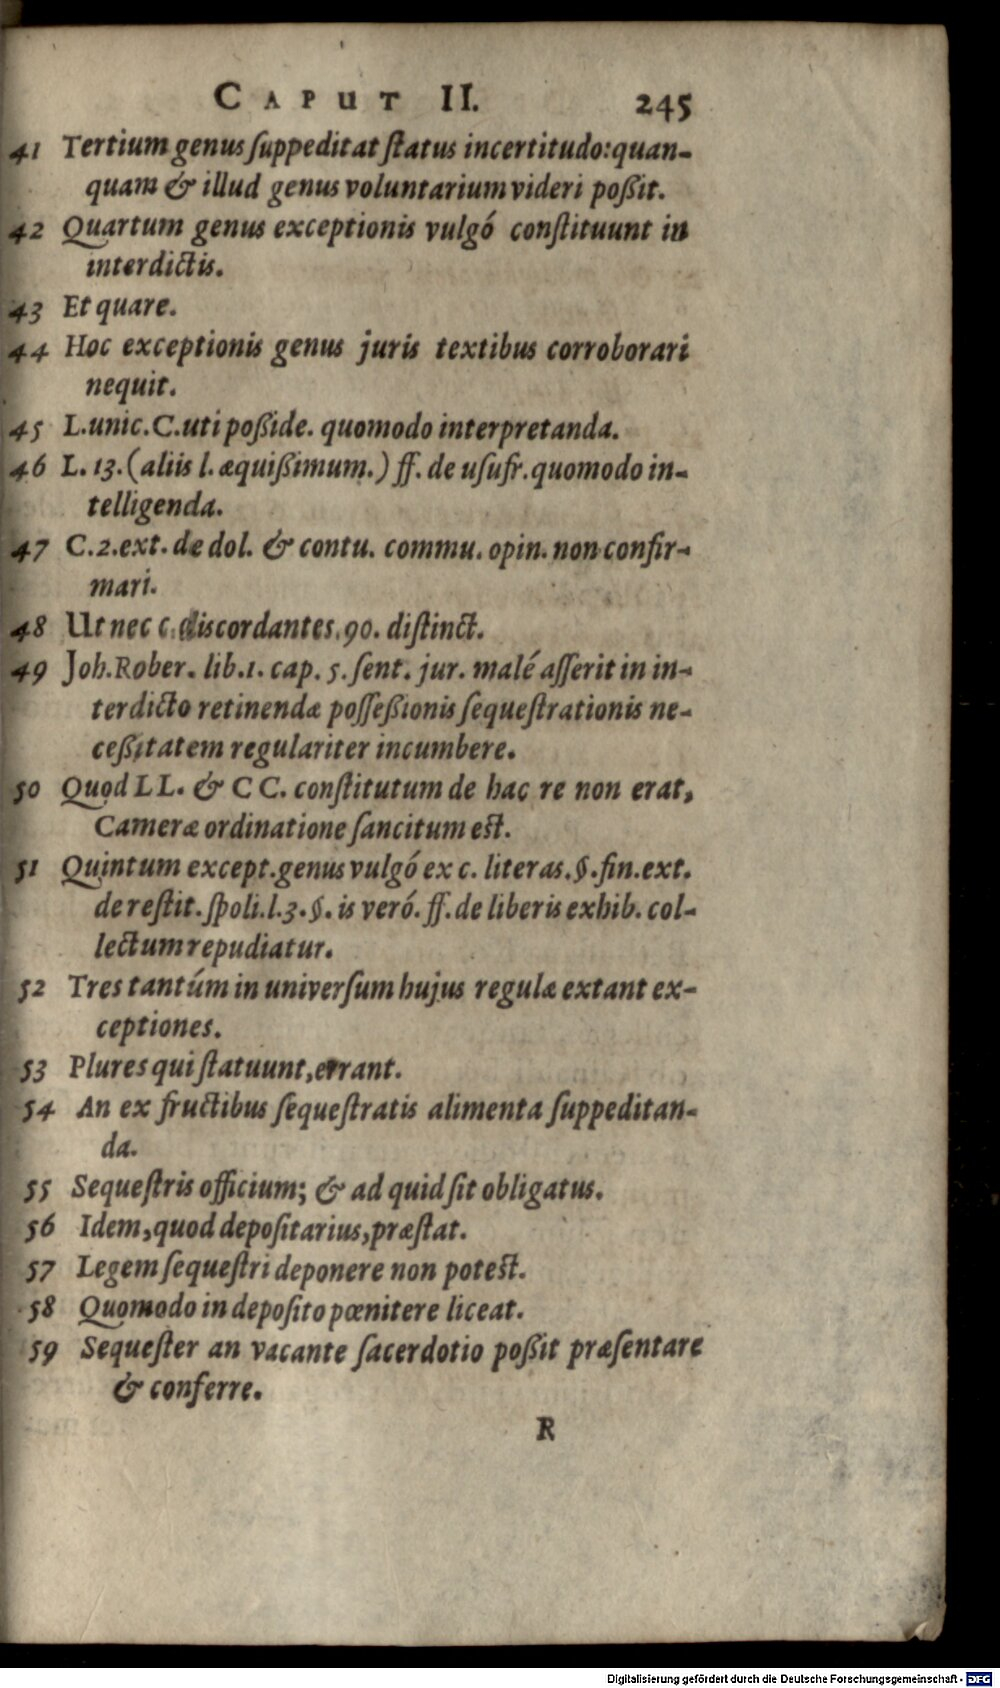 CAPUT II. 245
41 Tertium genus ſuppeditat ſtatus incertitudo: quan-
quam & illud genus voluntarium videri poßit.
42 Quartum genus exceptionis vulgó conſtituunt in
interdictis.
43 Et quare.
44 Hoc exceptionis genus juris textibus corroborari
nequit.
45 L. unic. C. uti poßide. quomodo interpretanda.
46 L. 13. (aliis l. æquißimum.) ff. de uſufr. quomodo in-
telligenda.
47 C. 2. ext. de dol. & contu. commu. opin. non confir-
mari.
48 Ut nec c. discordantes. 90. diſtinct.
49 Joh. Rober. lib. 1. cap. 5. ſent. jur. malé aſſerit in in-
terdicto retinendæ poſſeßionis ſequeſtrationis ne-
ceßitatem regulariter incumbere.
50 Quod LL. & CC. conſtitutum de hac re non erat,
Cameræ ordinatione ſancitum eſt.
51 Quintum except. genus vulgó ex c. literas. §. fin. ext.
de reſtit. ſpoli. l. 3. §. is veró. ff. de liberis exhib. col-
lectum repudiatur.
52 Tres tantúm in univerſum hujus regulæ extant ex-
ceptiones.
53 Plures qui ſtatuunt, errant.
54 An ex fructibus ſequeſtratis alimenta ſuppeditan-
da.
55 Sequeſtris officium; & ad quid ſit obligatus.
56 Idem, quod depoſitarius, præſtat.
57 Legem ſequeſtri deponere non poteſt.
58 Quomodo in depoſito pœnitere liceat.
59 Sequeſter an vacante ſacerdotio poßit præſentare
& conferre.
R
Digitalisierung gefördert durch die Deutsche Forschungsgemeinschaft - DFG